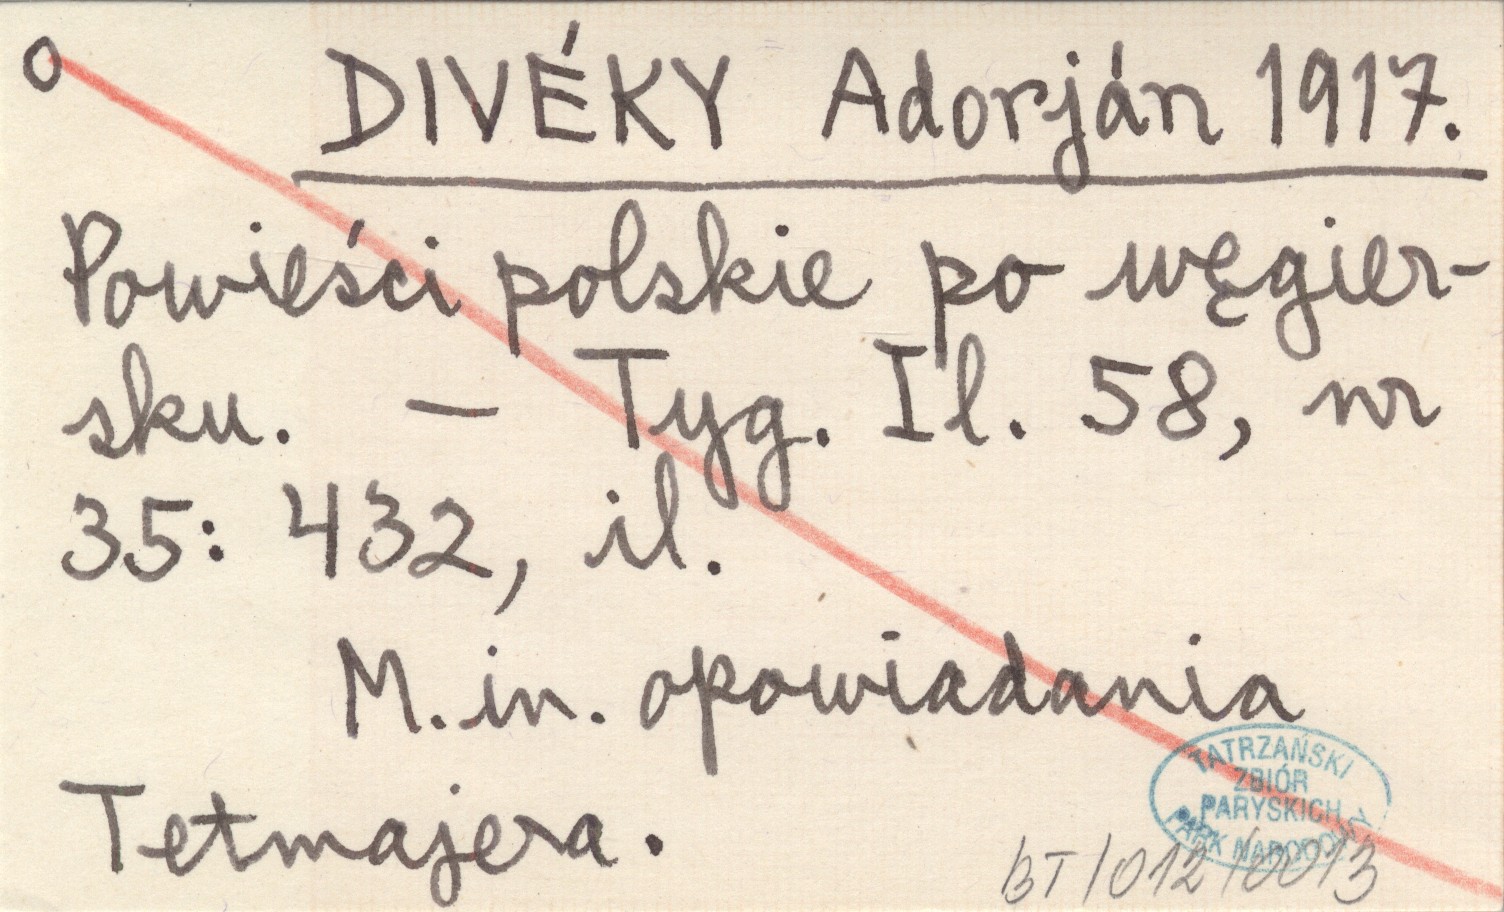 O DIVÉKY Adorján 1917.
Powieści polskie po węgier-
sku. – Tyg. Il. 58, nr
35: 432, il.
M. in. opowiadania
Tetmajera.
TATRZAŃSKI
ZBIÓR
PARYSKICH
PARK NARODOWY
BT/012/0013